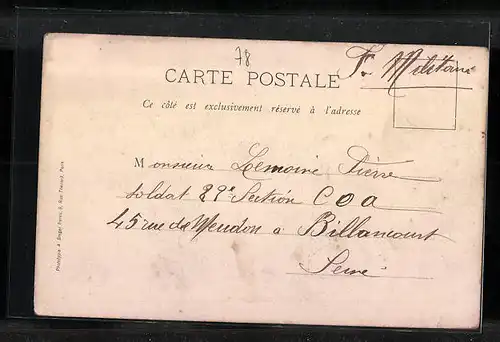 78
F. Militaire
CARTE POSTALE
Ce côté est exclusivement réservé à l'adresse
Monsieur Lemoine Pierre
soldat 29e Section C O A
45 rue de Meudon a Billancourt
Seine
Phototypie A. Breger Frères, 9, Rue Thénard, Paris